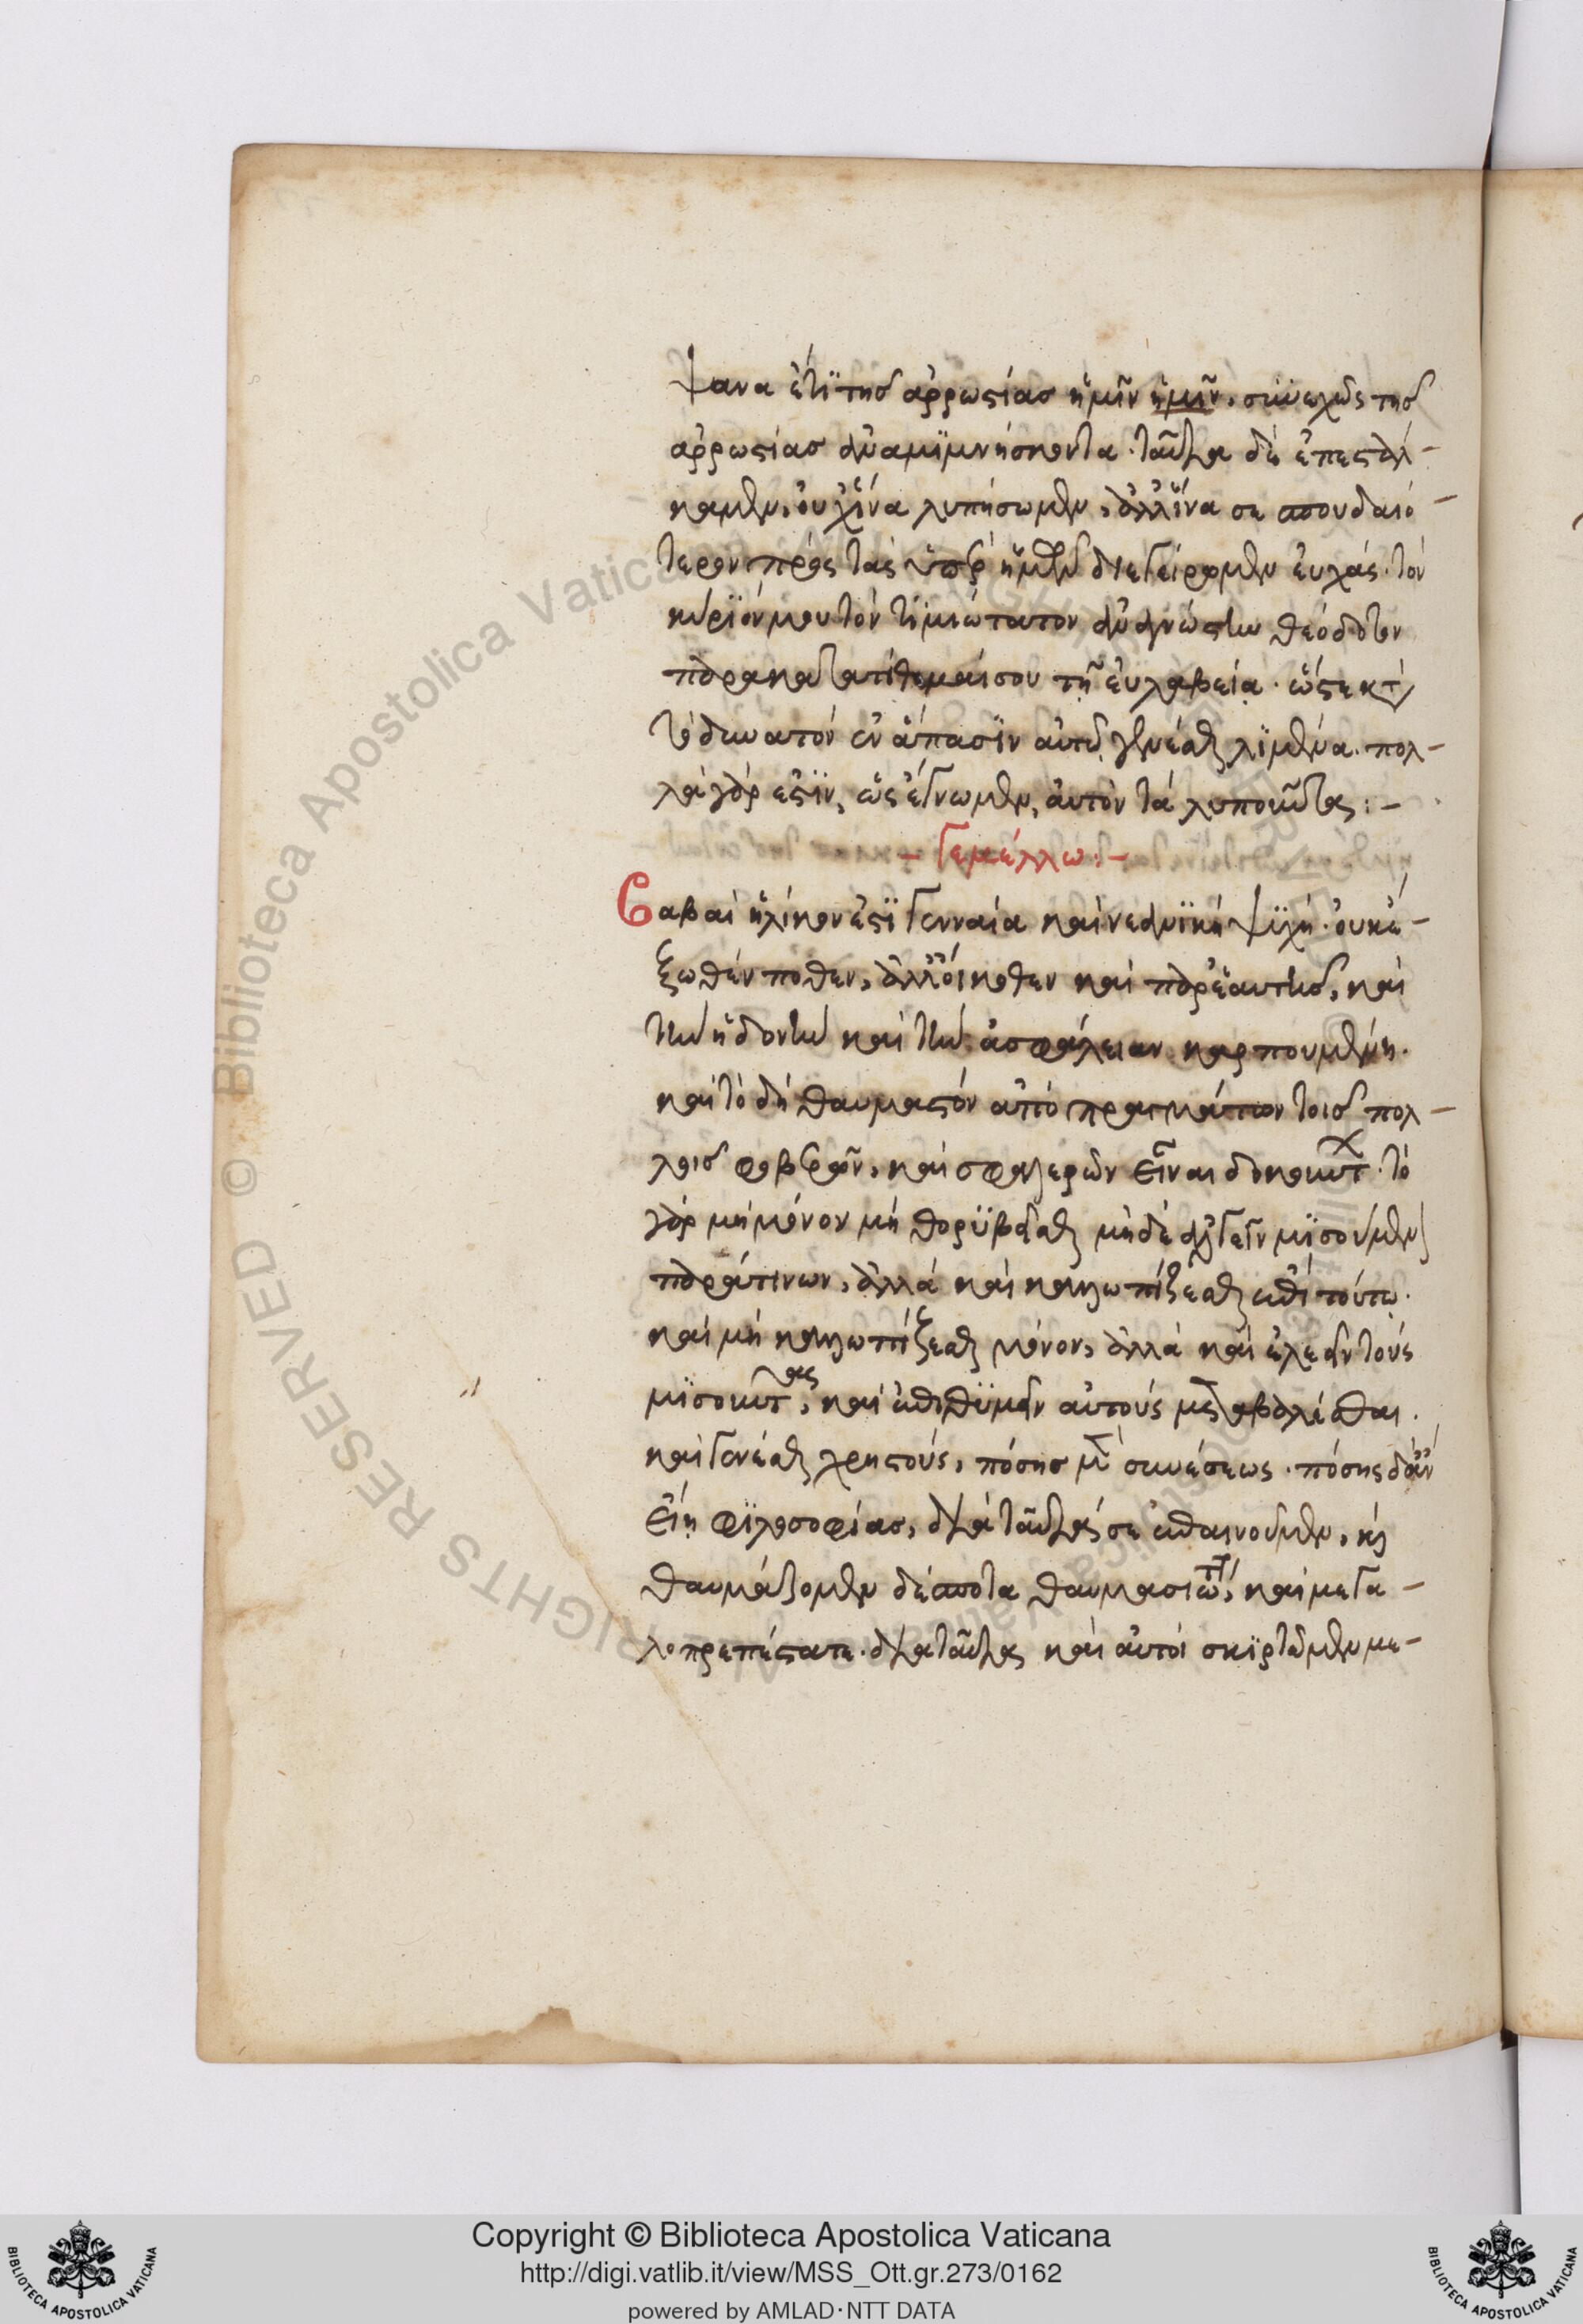 ψανα ἔτι τῆς ἀρρωστίας ἡμῖν ἡμῖν, συνεχῶς τῆς
ἀρρωστίας ἀναμιμνήσκοντα. ταῦτα δὲ ἐπεστάλ-
καμεν, οὐχ ἵνα λυπήσωμεν, ἀλλ' ἵνα σε σπουδαιό-
τερον πρὸς τὰς ὑπὲρ ἡμῶν διεγείρωμεν εὐχάς. τὸν
κύριόν μου τὸν τιμιώτατον ἀναγνώστην θεόδοτον
παρακατατίθεμαί σου τῇ εὐλαβείᾳ. ὥστε κτ
τὸ δυνατὸν ἐν ἅπασιν αὐτῷ γενέσθαι λιμένα. πολ-
λὰ γάρ ἐστιν, ὡς ἔγνωμεν, αὐτὸν τὰ λυποῦντα:-
- Γεμέλλω:-
Βαβαὶ ἡλίκον ἐστὶ γενναία καὶ νεανικὴ ψυχή. οὐκ ἔ-
ξωθέν ποθεν, ἀλλ' οἴκοθεν καὶ παρ' ἑαυτῆς, καὶ
τὴν ἡδονὴν καὶ τὴν ἀσφάλειαν καρπουμένη.
καὶ τὸ δὴ θαυμαστὸν ἀπὸ πραγμάτων τοῖς πολ-
λοῖς φοβερῶν, καὶ σφαλερῶν εἶναι δοκούντ. τὸ
γὰρ μὴ μόνον μὴ θορυβεῖσθαι μηδὲ ἀλγεῖν μισούμεν
παρά τινων, ἀλλὰ καὶ καλλωπίζεσθαι ἐπὶ τούτῳ.
καὶ μὴ καλλωπίζεσθαι μόνον, ἀλλὰ καὶ ἐλεεῖν τοὺς
μισοῦντας, καὶ ἐπιθυμεῖν αὐτοὺς μεταβαλέσθαι.
καὶ γενέσθαι χρηστούς, πόσης μὲν συνέσεως. πόσης δ' ἂν
εἴη φιλοσοφίας, διὰ ταῦτά σε ἐπαινοῦμεν, καὶ
θαυμάζομεν δέσποτα θαυμασιώτ, καὶ μεγα-
λοπρεπέστατε. διὰ ταῦτα καὶ αὐτοὶ σκιρτῶμεν με-
Copyright © Biblioteca Apostolica Vaticana
http://digi.vatlib.it/view/MSS_Ott.gr.273/0162
powered by AMLAD·NTT DATA